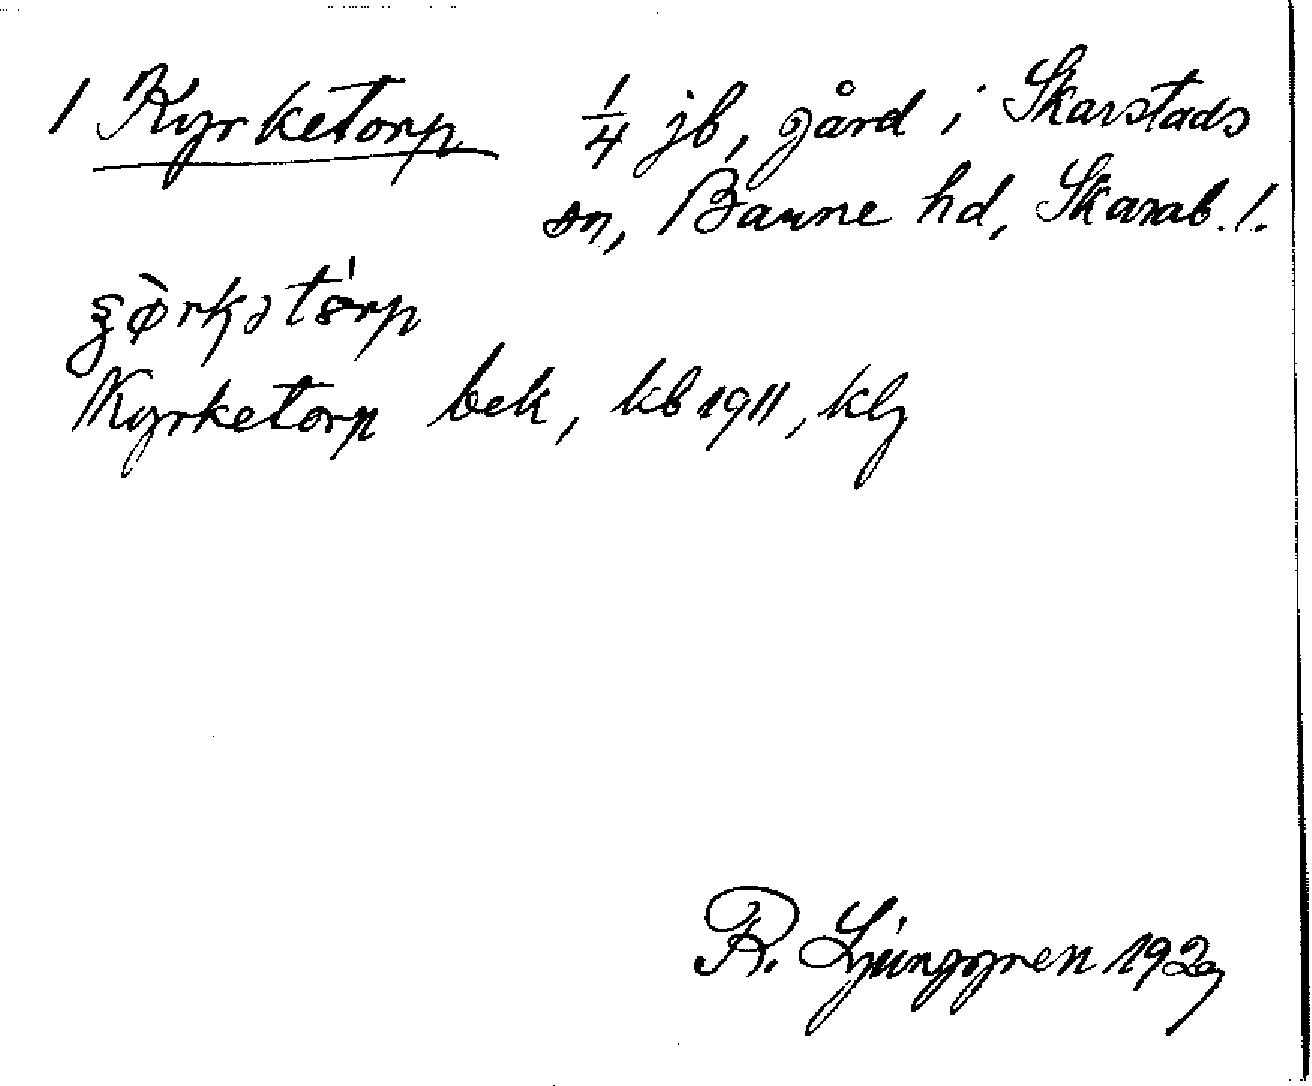 1 Kyrketorp 1/4 jb, gård i Skarstads
sn, Barne hd, Skarab. l.
Kyrketorp bek, kb 1911, klj
R. Ljunggren 1929